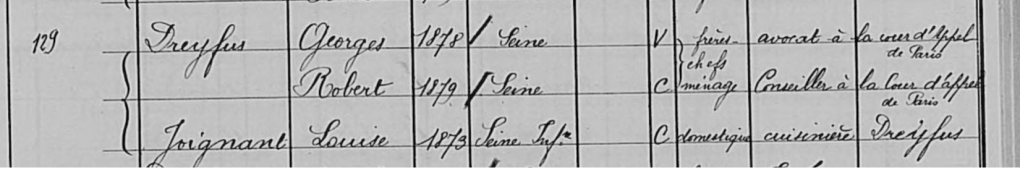 129 Dreyfus Georges 1878 / Seine V frères avocat à la cour d'Appel
de Paris
chefs
Robert 1879 / Seine C ménage Conseiller à la Cour d'appel
de Paris
Joignant Louise 1873 Seine Infre C domestique cuisinière Dreyfus